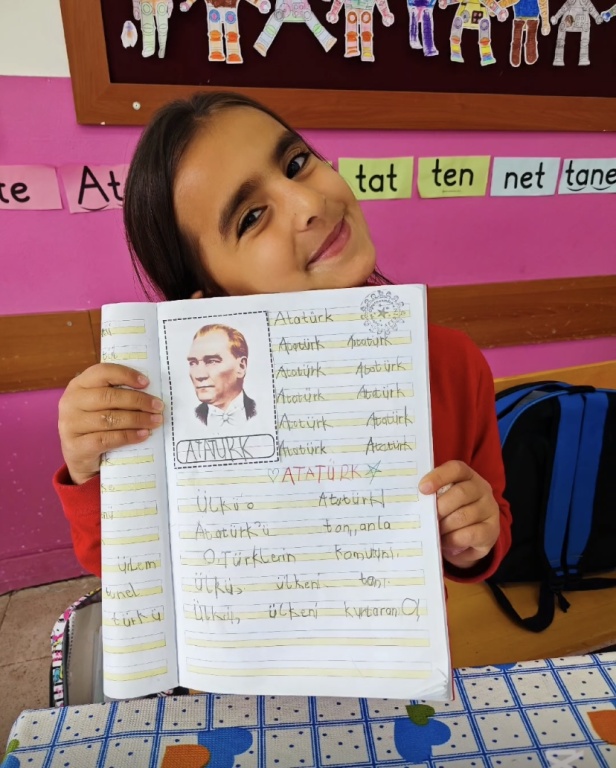 At
tat ten net tane
Atatürk
Atatürk Atatürk
Atatürk Atatürk
Atatürk Atatürk
Atatürk Atatürk
Atatürk Atatürk
ATATÜRK
ATATÜRK
Ülkü Atatürk
Atatürk'ü tanı, anla
O, Türklerin
Ülkü, ülkeni tanı.
Ülkü, ülkeni kurtaran O,
ülem
tünel
türkü